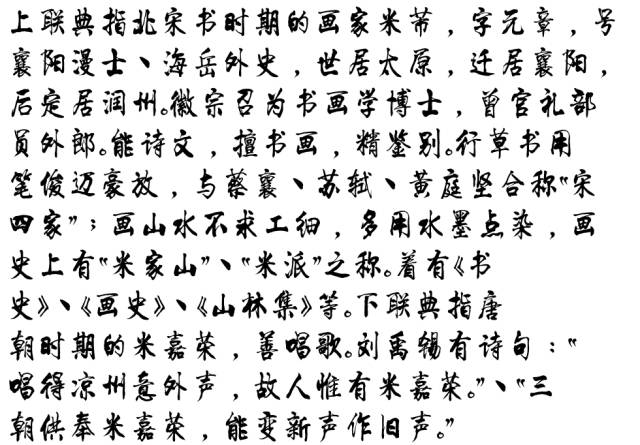 上联典指北宋书时期的画家米芾，字元章，号
襄阳漫士、海岳外史，世居太原，迁居襄阳，
后定居润州。徽宗召为书画学博士，曾官礼部
员外郎。能诗文，擅书画，精鉴别。行草书用
笔俊迈豪放，与蔡襄、苏轼、黄庭坚合称“宋
四家”；画山水不求工细，多用水墨点染，画
史上有“米家山”、“米派”之称。着有《书
史》、《画史》、《山林集》等。下联典指唐
朝时期的米嘉荣，善唱歌。刘禹锡有诗句：“
唱得凉州意外声，故人惟有米嘉荣。”、“三
朝供奉米嘉荣，能变新声作旧声。”